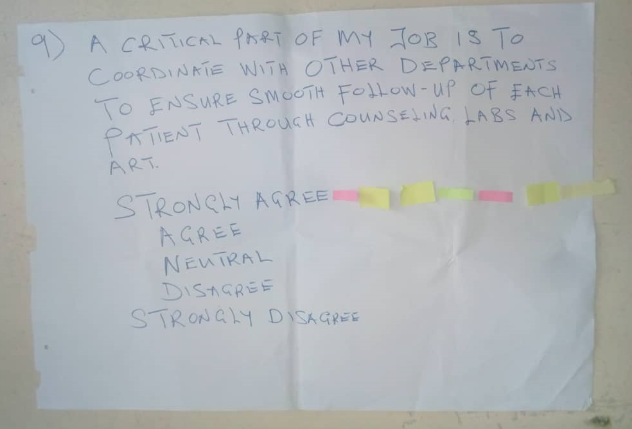 9) A CRITICAL PART OF MY JOB IS TO
COORDINATE WITH OTHER DEPARTMENTS
TO ENSURE SMOOTH FOLLOW-UP OF EACH
PATIENT THROUGH COUNSELING, LABS AND
ART.
STRONGLY AGREE
AGREE
NEUTRAL
DISAGREE
STRONGLY DISAGREE